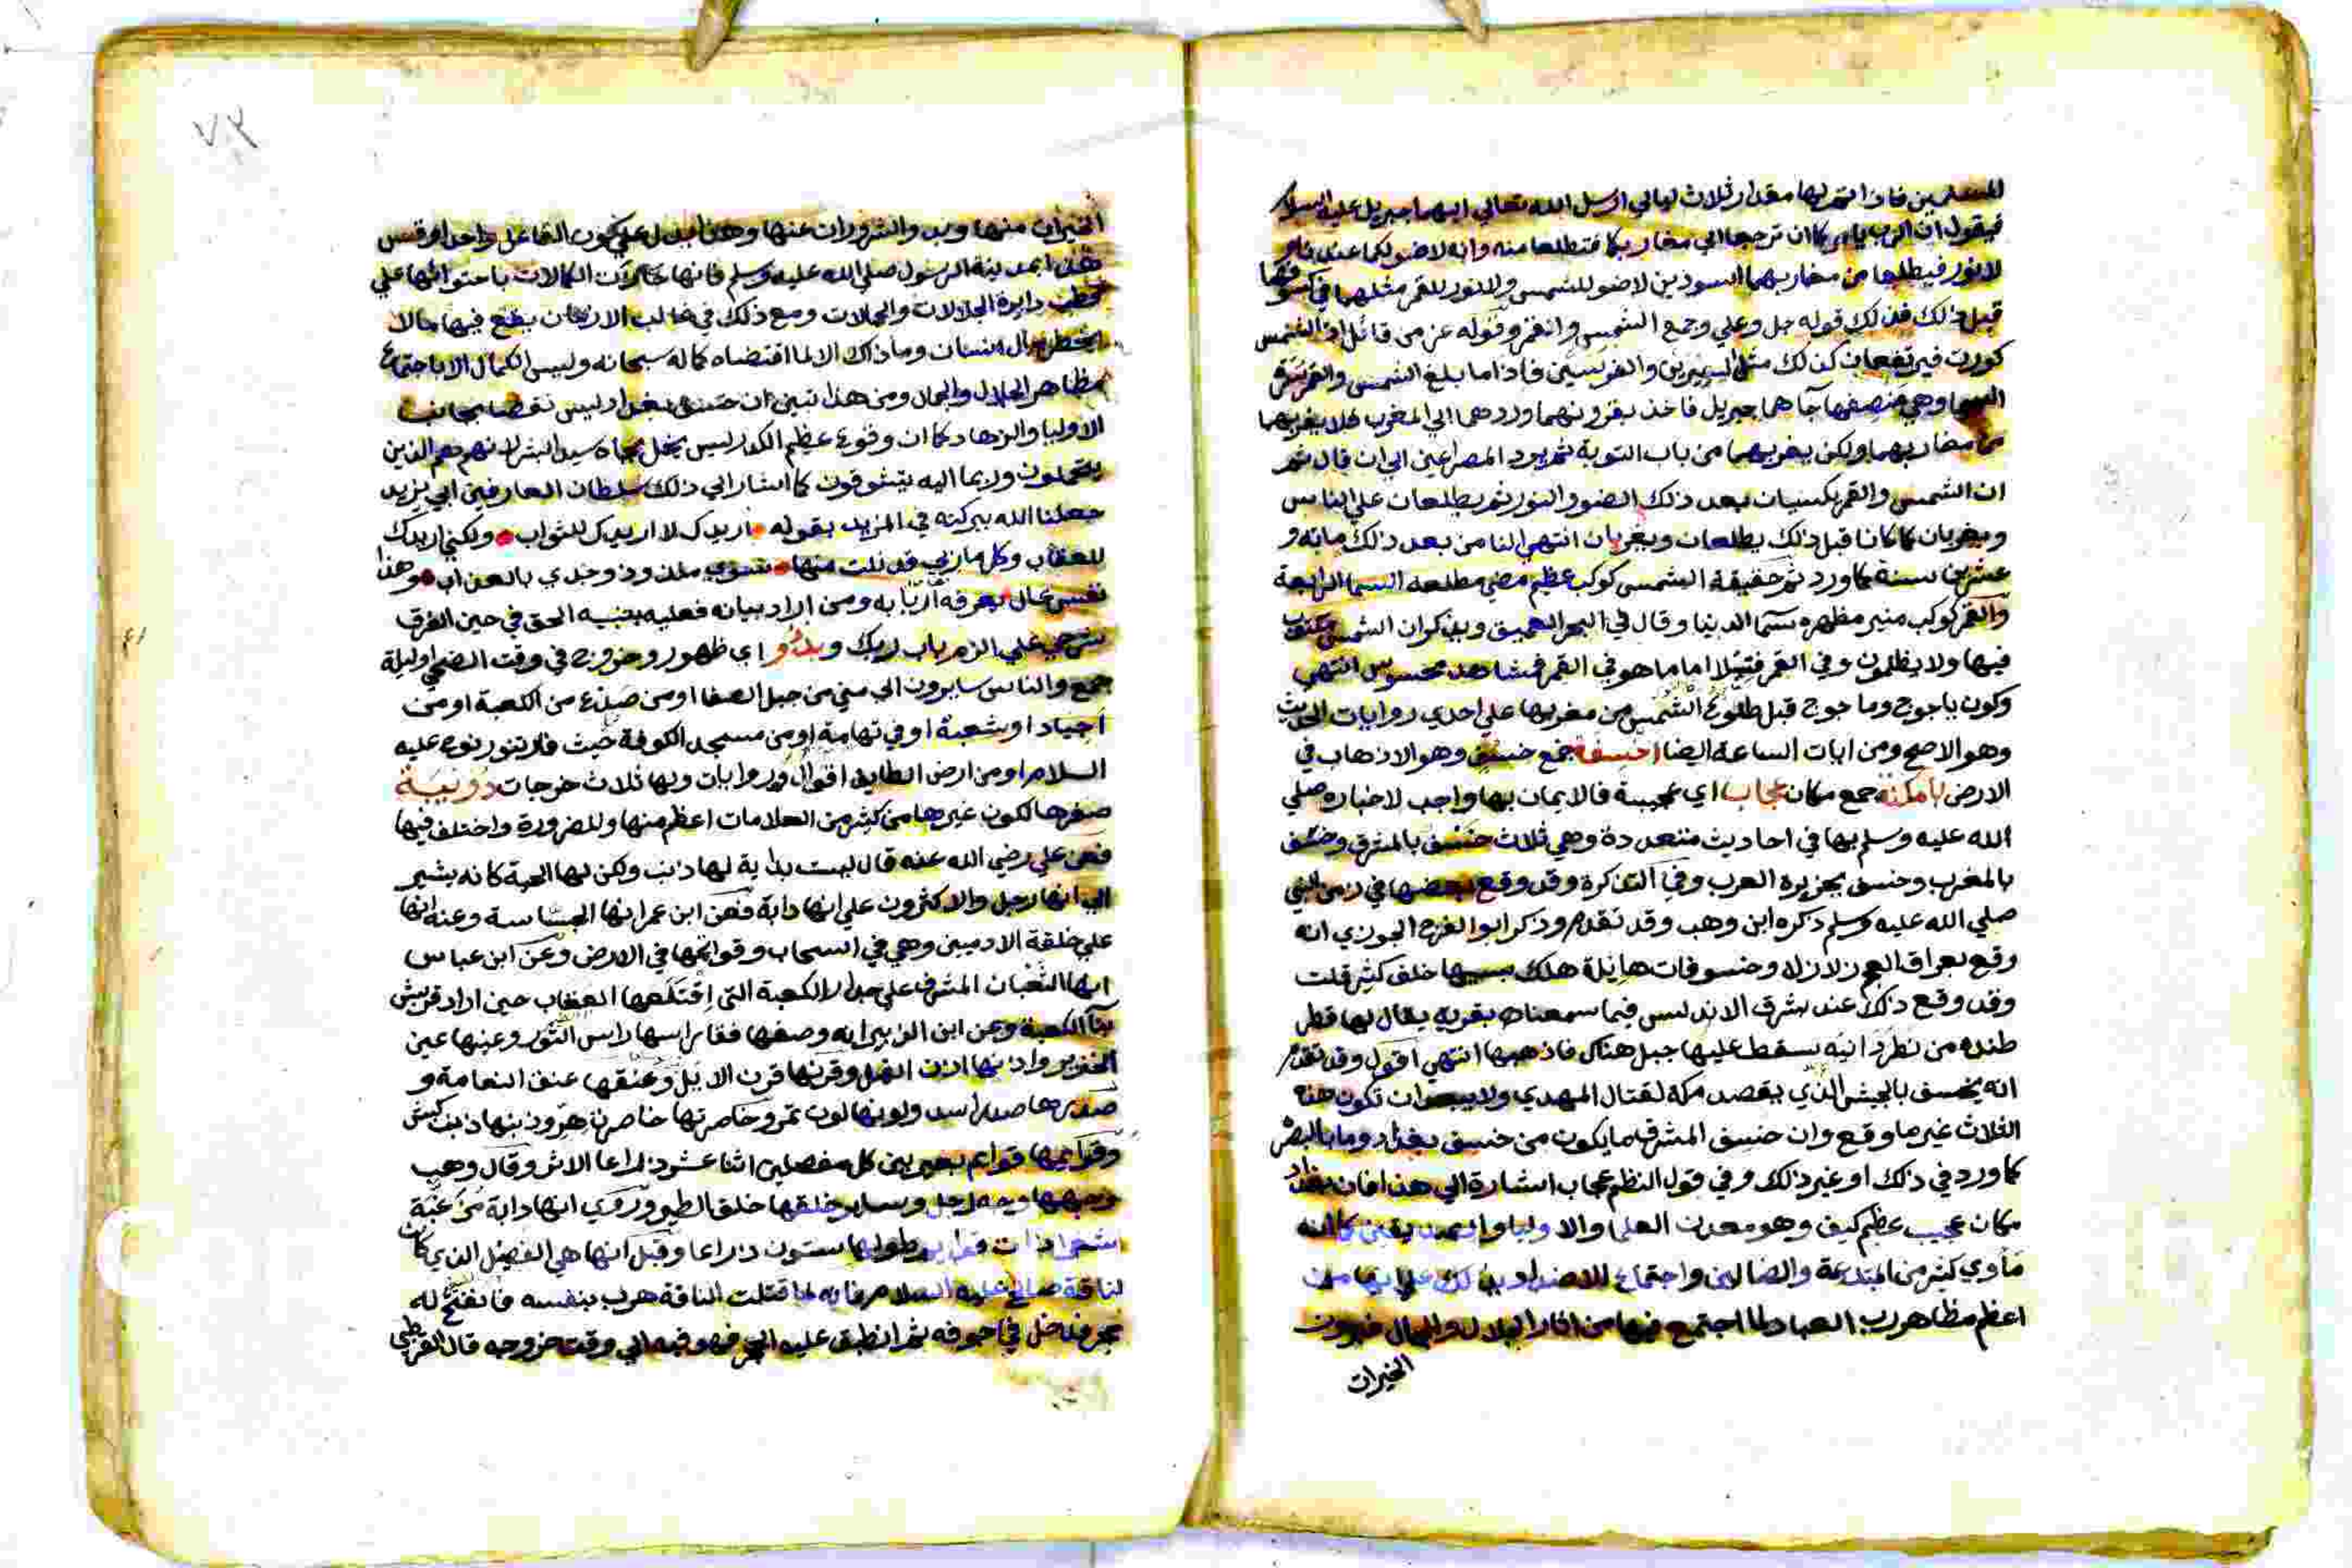 للمسلمين فاذا تم لهما مقدار ثلاث ليالي ارسل الله تعالي اليهما جبريل عليه السلام
فيقول ان الرب يامركما ان ترجعا الي مغاربكما فتطلعا منه وانه لا ضو لكما عندنا
ولا نور فيطلعا من مغاربهما اسودين لا ضو للشمس ولا نور للقمر مثلهما في كسوفهما
قبل ذلك فذلك قوله جل وعلي وجمع الشمس والقمر وقوله عز من قائل اذا الشمس
كورت فيرتفعان كذلك مثل البعيرين والفرسين فاذا ما بلغ الشمس والقمر سرة
السما وهي منصفها جآهما جبريل فاخذ بقرونهما وردهما الي المغرب فلا يغربهما
من مغاربهما ولكن يغربهما من باب التوبة ثم يرد المصراعين الي ان قال ثم
ان الشمس والقمر يكسيان بعد ذلك الضو والنور ثم يطلعان علي الناس
ويغربان كما كانا قبل ذلك يطلعان ويغربان انتهي الناس بعد ذلك مايه و
عشرين سنة كما ورد ثم حقيقة الشمس كوكب عظيم مضي مطلعه السما الرابعة
والقمر كوكب منير مظهره سمآ الدنيا وقال في البحر العميق ويذكر ان الشمس مكتوب
فيها ولا يظلمون وفي القمر فتيلا اما ما هو في القمر فمشاهد محسوس انتهي
وكون ياجوج وماجوج قبل طلوع الشمس من مغربها علي احدي روايات الحديث
وهو الاصح ومن ايات الساعة ايضا اخسفة جمع خسف وهو الاذهاب في
الارض بامكنة جمع مكان عجاب اي عجيبة فالايمان بها واجب لاخباره صلي
الله عليه وسلم بها في احاديث متعددة وهي ثلاث خسف بالمشرق وخسف
بالمغرب وخسف بجزيرة العرب وفي التذكرة وقد وقع بعضها في زمن النبي
صلي الله عليه وسلم ذكره ابن وهب وقد تقدم وذكر ابو الفرج الجوزي انه
وقع بعراق العجم زلازل وخسوفات هايلة هلك بسببها خلق كثير قلت
وقد وقع ذلك عند بشرق الاندلس فيما سمعناه بقرية يقال لها قطر
طنده من نظر دانيه سقط عليها جبل هناك فاذهبها انتهي اقول وقد تقدم
انه يخسف بالجيش الذي يقصد مكة لقتال المهدي ولا يبعد ان تكون هذه
الثلاث غير ما وقع وان خسف المشرق ما يكون من خسف بغداد وما بالبصره
كما ورد في ذلك او غير ذلك وفي قول النظم عجاب اشارة الي هذا فان بغداد
مكان عجيب عظيم كيف وهو معدن العلما والاوليا
ماوي كثير من المبتدعة والضالين واجتماع الاضداد
اعظم مظاهر رب العباد لما اجتمع فيها من اثار الجلال والجمال
الخيرات
٧٣
الخيرات منها وبدو الشرور ان عنها وهذا يدل علي كون الفاعل واحدا وقس
هذا بمدينة الرسول صلي الله عليه وسلم فانها حازت الكمالات باحتوائها علي
قطب دايرة الجلالات والجمالات ومع ذلك في غالب الازمان يقع فيها مالا
يخطر ببال انسان وما ذاك الا لما اقتضاه كماله سبحانه وليس الكمال الا باجتماع
مظاهر الجلال والجمال ومن هذا تبين ان خسف بغداد ليس نقصا بجانب
الاوليا والزهاد كما ان وقوع عظيم الكدر ليس يخل بجاه سيد البشر لانهم هم الذين
يتحملون وربما اليه يتشوقون كما اشار الي ذلك سلطان العارفين ابي يزيد
جعلنا الله ببركته في المزيد بقوله • اريدك لا اريدك للثواب • ولكني اريدك
للعقاب وكل ماربي قد نلت منها • سوي ملذوذ وجدي بالعذاب • وهذا
نفس عال يعرفه اربابه ومن اراد بيانه فعليه بتنبيه الحق في حين الفرق
شرحي علي الزم باب ربك وبدؤ اي ظهور وخروج في وقت الضحي او ليلة
جمع والناس سايرون الي مني من جبل الصفا او من صدع من الكعبة او من
اجياد او شعبة او في تهامة او من مسجد الكوفة حيث فار تنور نوح عليه
السلام او من ارض الطايف اقوال وروايات ولها ثلاث خرجات دويبة
صغرها لكون غيرها من كثير من العلامات اعظم منها وللضرورة واختلف فيها
فعن علي رضي الله عنه قال ليست بداية لها ذنب ولكن لها لحية كانه يشير
الي انها رجل والاكثرون علي انها دابة فعن ابن عمر انها الجساسة وعنه انها
علي خلقة الادميين وهي في السحاب وقوائمها في الارض وعن ابن عباس
انها الثعبان المشرف علي جدار الكعبة التي اقتلعها العقاب حين اراد قريش
بنآ الكعبة وعن ابن الزبير انه وصفها فقال راسها راس الثور وعينها عين
الخنزير واذنها اذن الفيل وقرنها قرن الايل وعنقها عنق النعامة و
صدرها صدر اسد ولونها لون نمر وخاصرتها خاصرة هر وذنبها ذنب كبش
وقوايمها قوايم بعير بين كل مفصلين اثنا عشر ذراعا الاثر وقال وهب
وجهها وجه رجل وساير خلقها خلق الطير وروي انها دابة مزغبة
شعرا ذات قوايم طولها ستون ذراعا وقيل انها هي الفصيل الذي كان
لناقة صالح عليه السلام فانه لما قتلت الناقة هرب بنفسه فانفتح له
حجر فدخل في جوفه ثم انطبق عليه الحجر فهو فيه الي وقت خروجه قال القرطبي